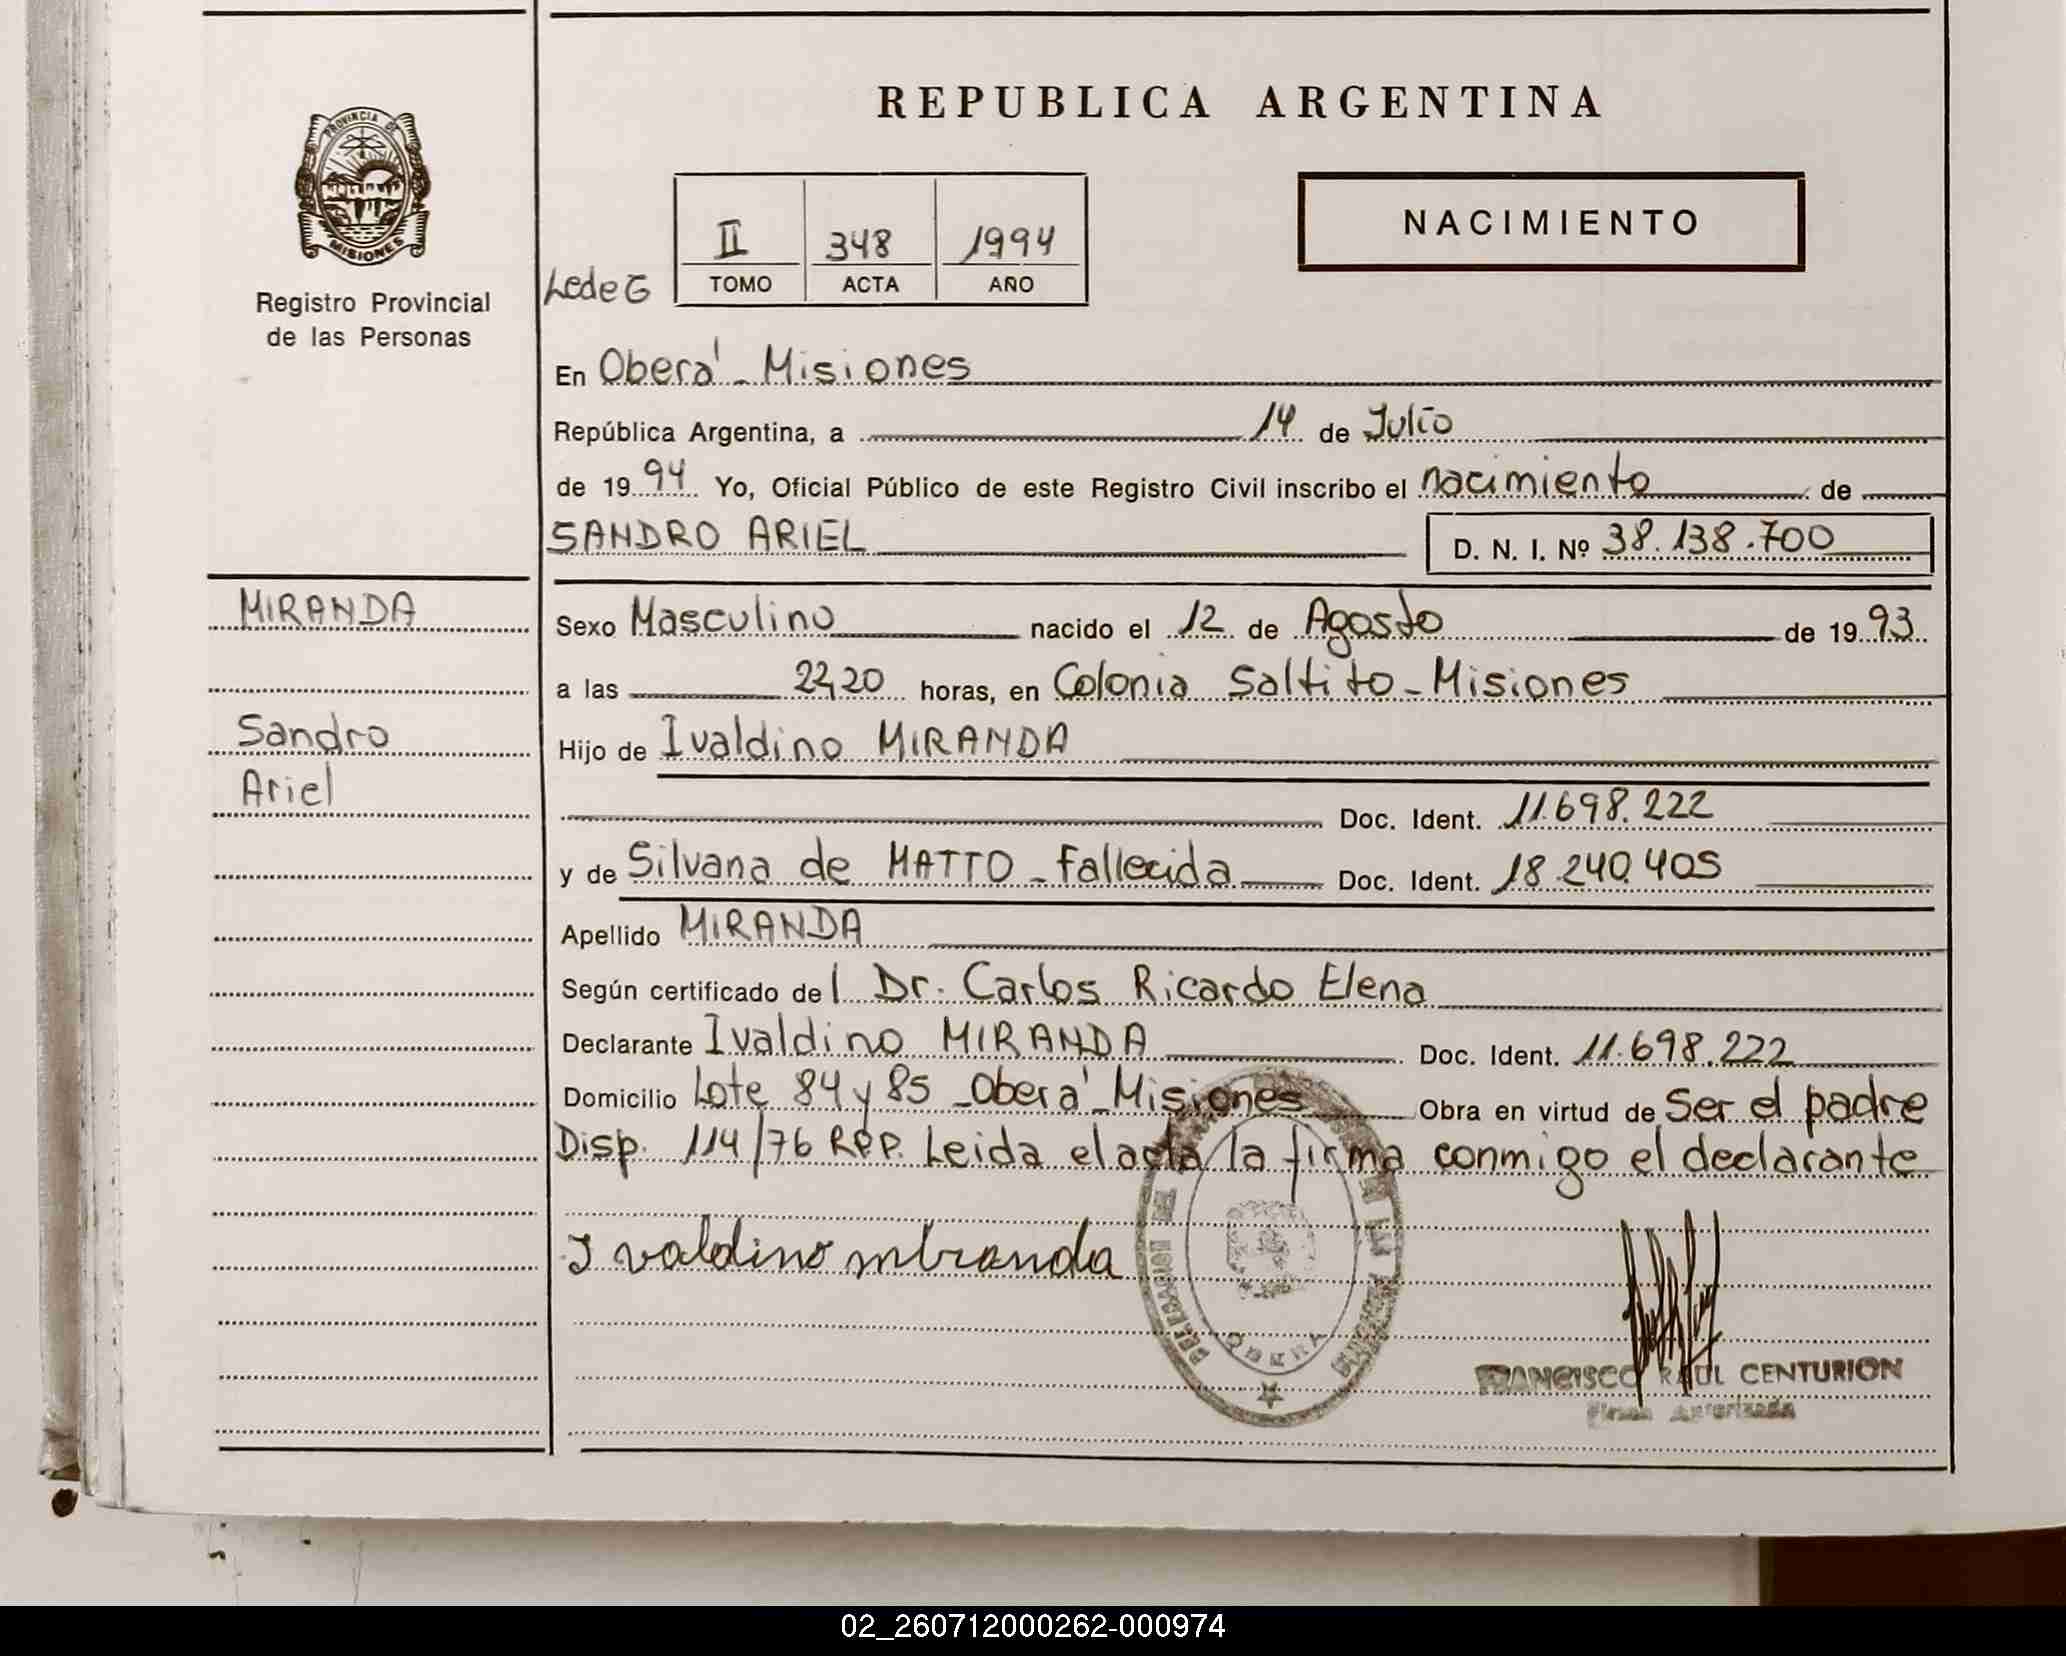 REPUBLICA ARGENTINA
PROVINCIA DE
MISIONES
Registro Provincial
de las Personas
NACIMIENTO
II 348 1994
TOMO ACTA AÑO
En Oberá - Misiones
República Argentina, a 14 de Julio
de 1994 Yo, Oficial Público de este Registro Civil inscribo el nacimiento de
SANDRO ARIEL D. N. I. Nº 38.138.700
MIRANDA
Sandro
Ariel
Sexo Masculino nacido el 12 de Agosto de 1993
a las 22,20 horas, en Colonia Saltito - Misiones
Hijo de Ivaldino MIRANDA
Doc. Ident. 11.698.222
y de Silvana de MATTO - Fallecida Doc. Ident. 18.240.405
Apellido MIRANDA
Según certificado del Dr. Carlos Ricardo Elena
Declarante Ivaldino MIRANDA Doc. Ident. 11.698.222
Domicilio Lote 84 y 85 - Oberá - Misiones Obra en virtud de Ser el padre
Disp. 114/76 RPP. Leida el acta la firma conmigo el declarante
Ivaldino miranda
FRANCISCO RAUL CENTURION
Firma Autorizada
02_260712000262-000974